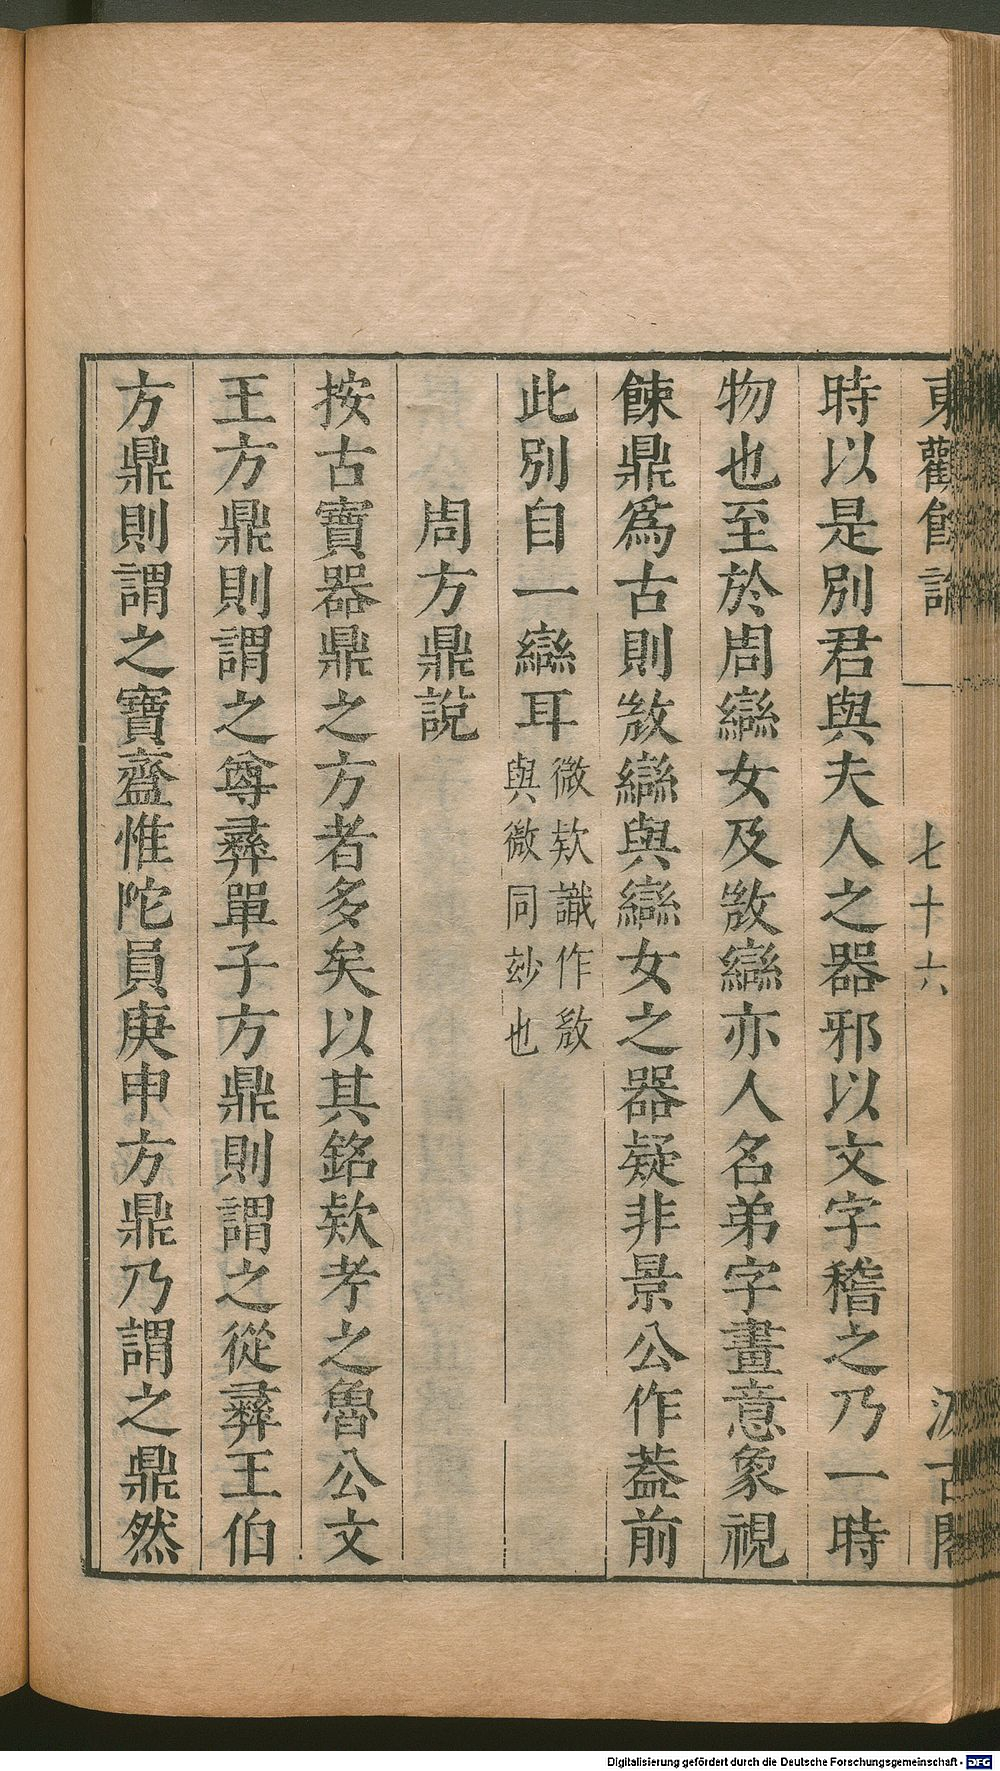 東觀餘論 七十六 汲古閣
時以是別君與夫人之器邪以文字稽之乃一時
物也至於周䜌女及敚䜌亦人名弟字畫意象視
餗鼎爲古則敚䜌與䜌女之器疑非景公作葢前
此別自一䜌耳
微欵識作敚
與微同玅也
周方鼎說
按古寶器鼎之方者多矣以其銘欵考之魯公文
王方鼎則謂之尊彝單子方鼎則謂之從彝王伯
方鼎則謂之寶齍惟陀員庚申方鼎乃謂之鼎然
Digitalisierung gefördert durch die Deutsche Forschungsgemeinschaft - DFG